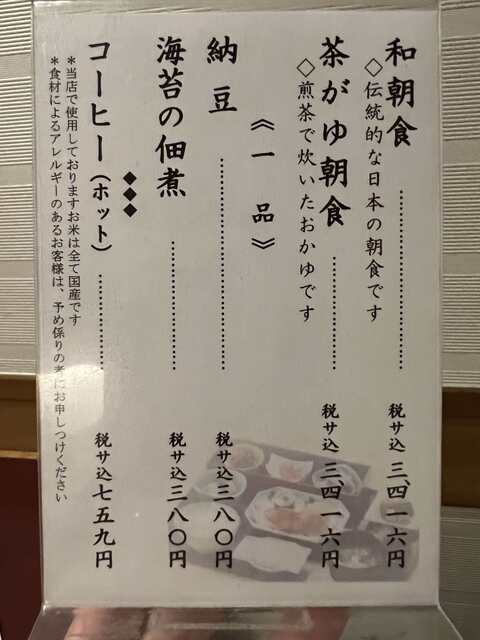 和朝食 税サ込 三、四一六円
◇伝統的な日本の朝食です
茶がゆ朝食 税サ込 三、四一六円
◇煎茶で炊いたおかゆです
《一品》
納豆 税サ込 三八〇円
海苔の佃煮 税サ込 三八〇円
◆◆◆
コーヒー(ホット) 税サ込 七五九円
*当店で使用しておりますお米は全て国産です
*食材によるアレルギーのあるお客様は、予め係りの者にお申しつけください